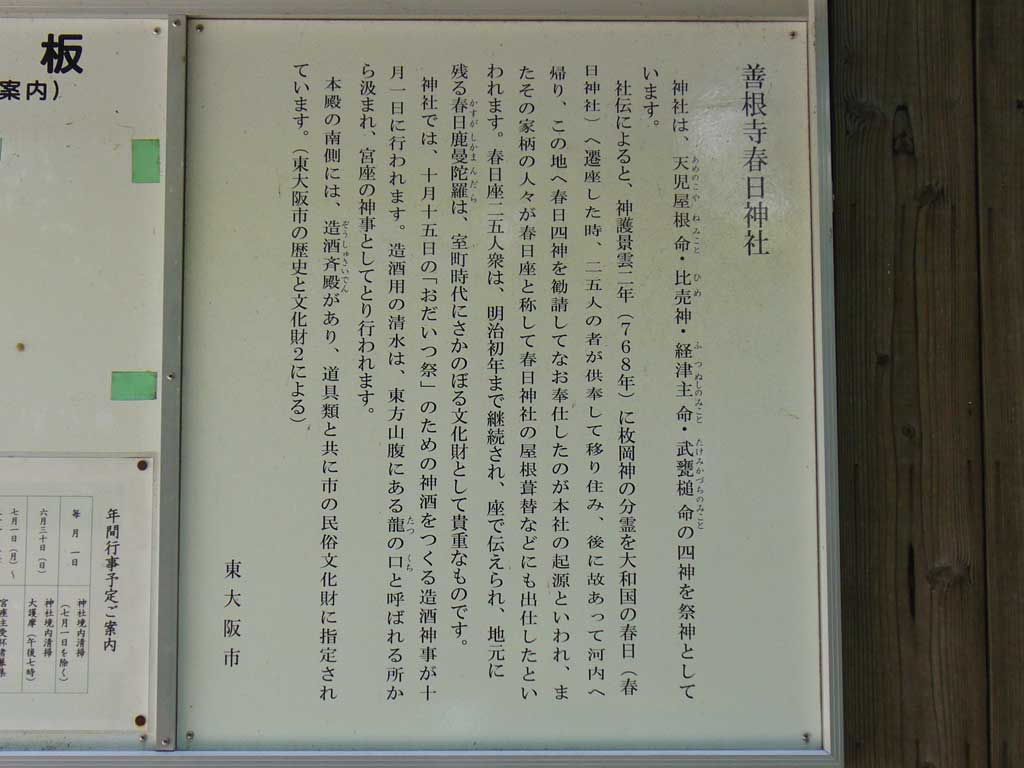 善根寺春日神社
神社は、天児屋根命・比売神・経津主命・武甕槌命の四神を祭神として
います。
社伝によると、神護景雲二年（768年）に枚岡神の分霊を大和国の春日（春
日神社）へ遷座した時、二五人の者が供奉して移り住み、後に故あって河内へ
帰り、この地へ春日四神を勧請してなお奉仕したのが本社の起源といわれ、ま
たその家柄の人々が春日座と称して春日神社の屋根葺替などにも出仕したとい
われます。春日座二五人衆は、明治初年まで継続され、座で伝えられ、地元に
残る春日鹿曼陀羅は、室町時代にさかのぼる文化財として貴重なものです。
神社では、十月十五日の「おだいつ祭」のための神酒をつくる造酒神事が十
月一日に行われます。造酒用の清水は、東方山腹にある龍の口と呼ばれる所か
ら汲まれ、宮座の神事としてとり行われます。
本殿の南側には、造酒斉殿があり、道具類と共に市の民俗文化財に指定され
ています。（東大阪市の歴史と文化財2による）
東大阪市
板
案内）
年間行事予定ご案内
毎月一日 神社境内清掃
（七月一日を除く）
六月三十日（日） 神社境内清掃
大護摩（午後七時）
七月一日（月）～